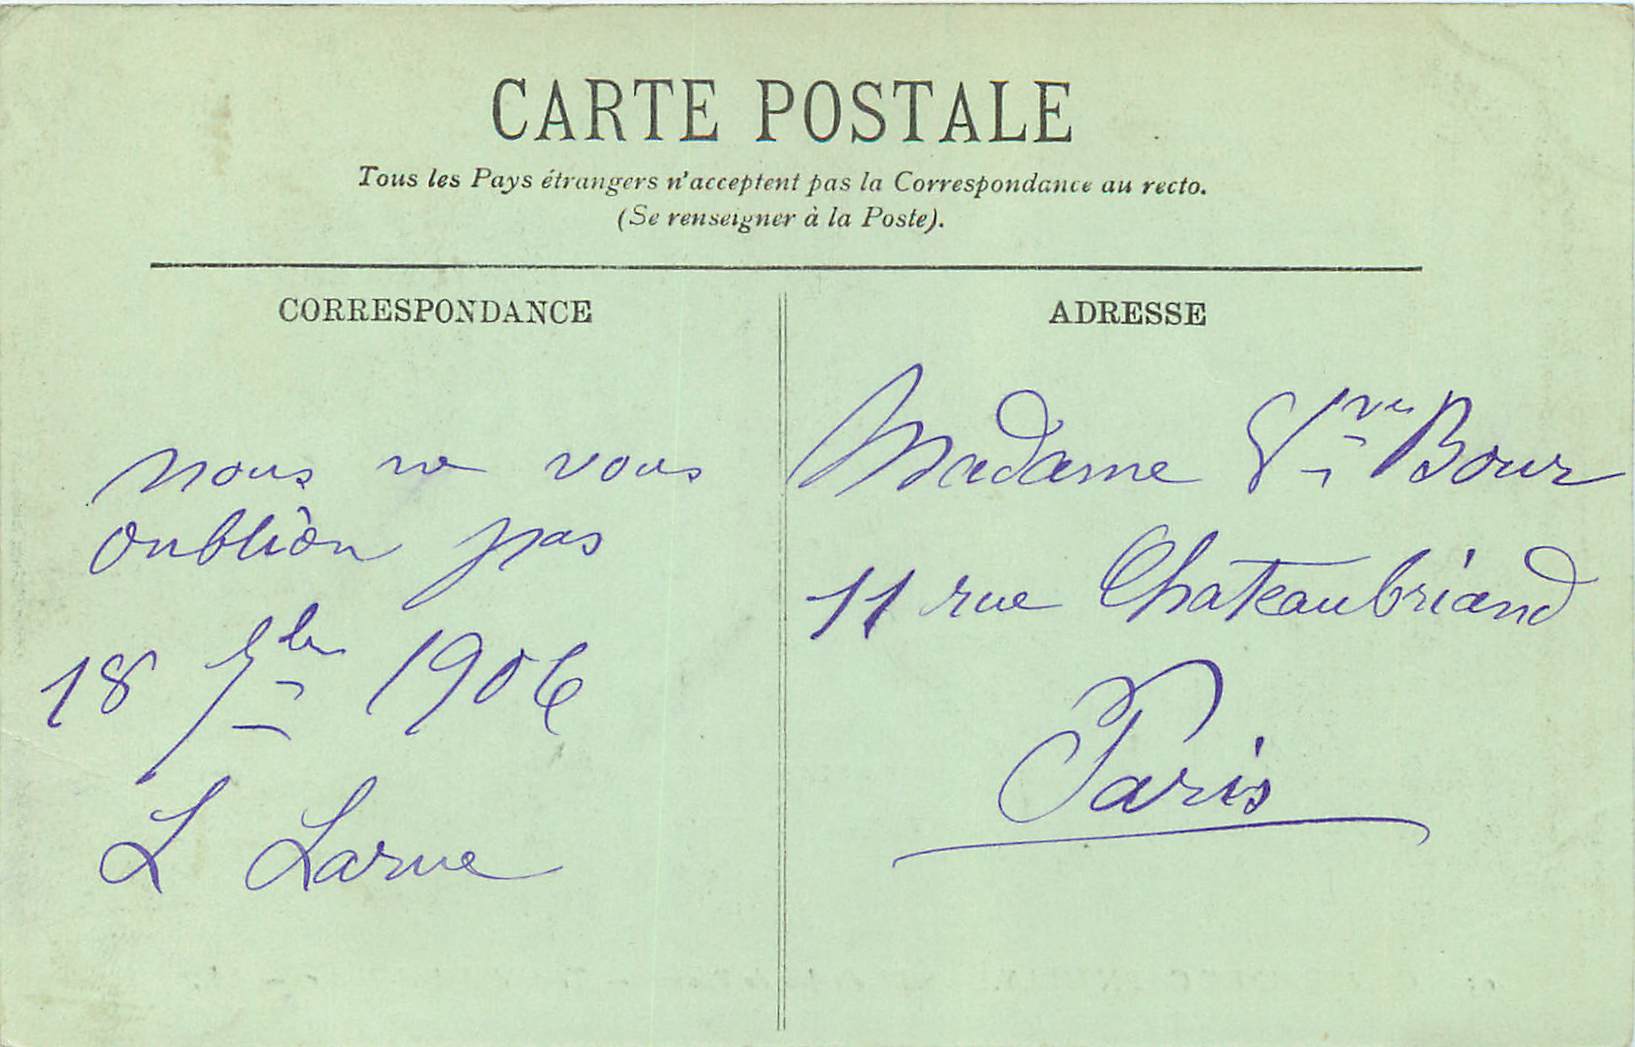 CARTE POSTALE
Tous les Pays étrangers n'acceptent pas la Correspondance au recto.
(Se renseigner à la Poste).
CORRESPONDANCE
nous ne vous
oublion pas
18 7bre 1906
L Larue
ADRESSE
Madame Vve Bour
11 rue Chateaubriand
Paris